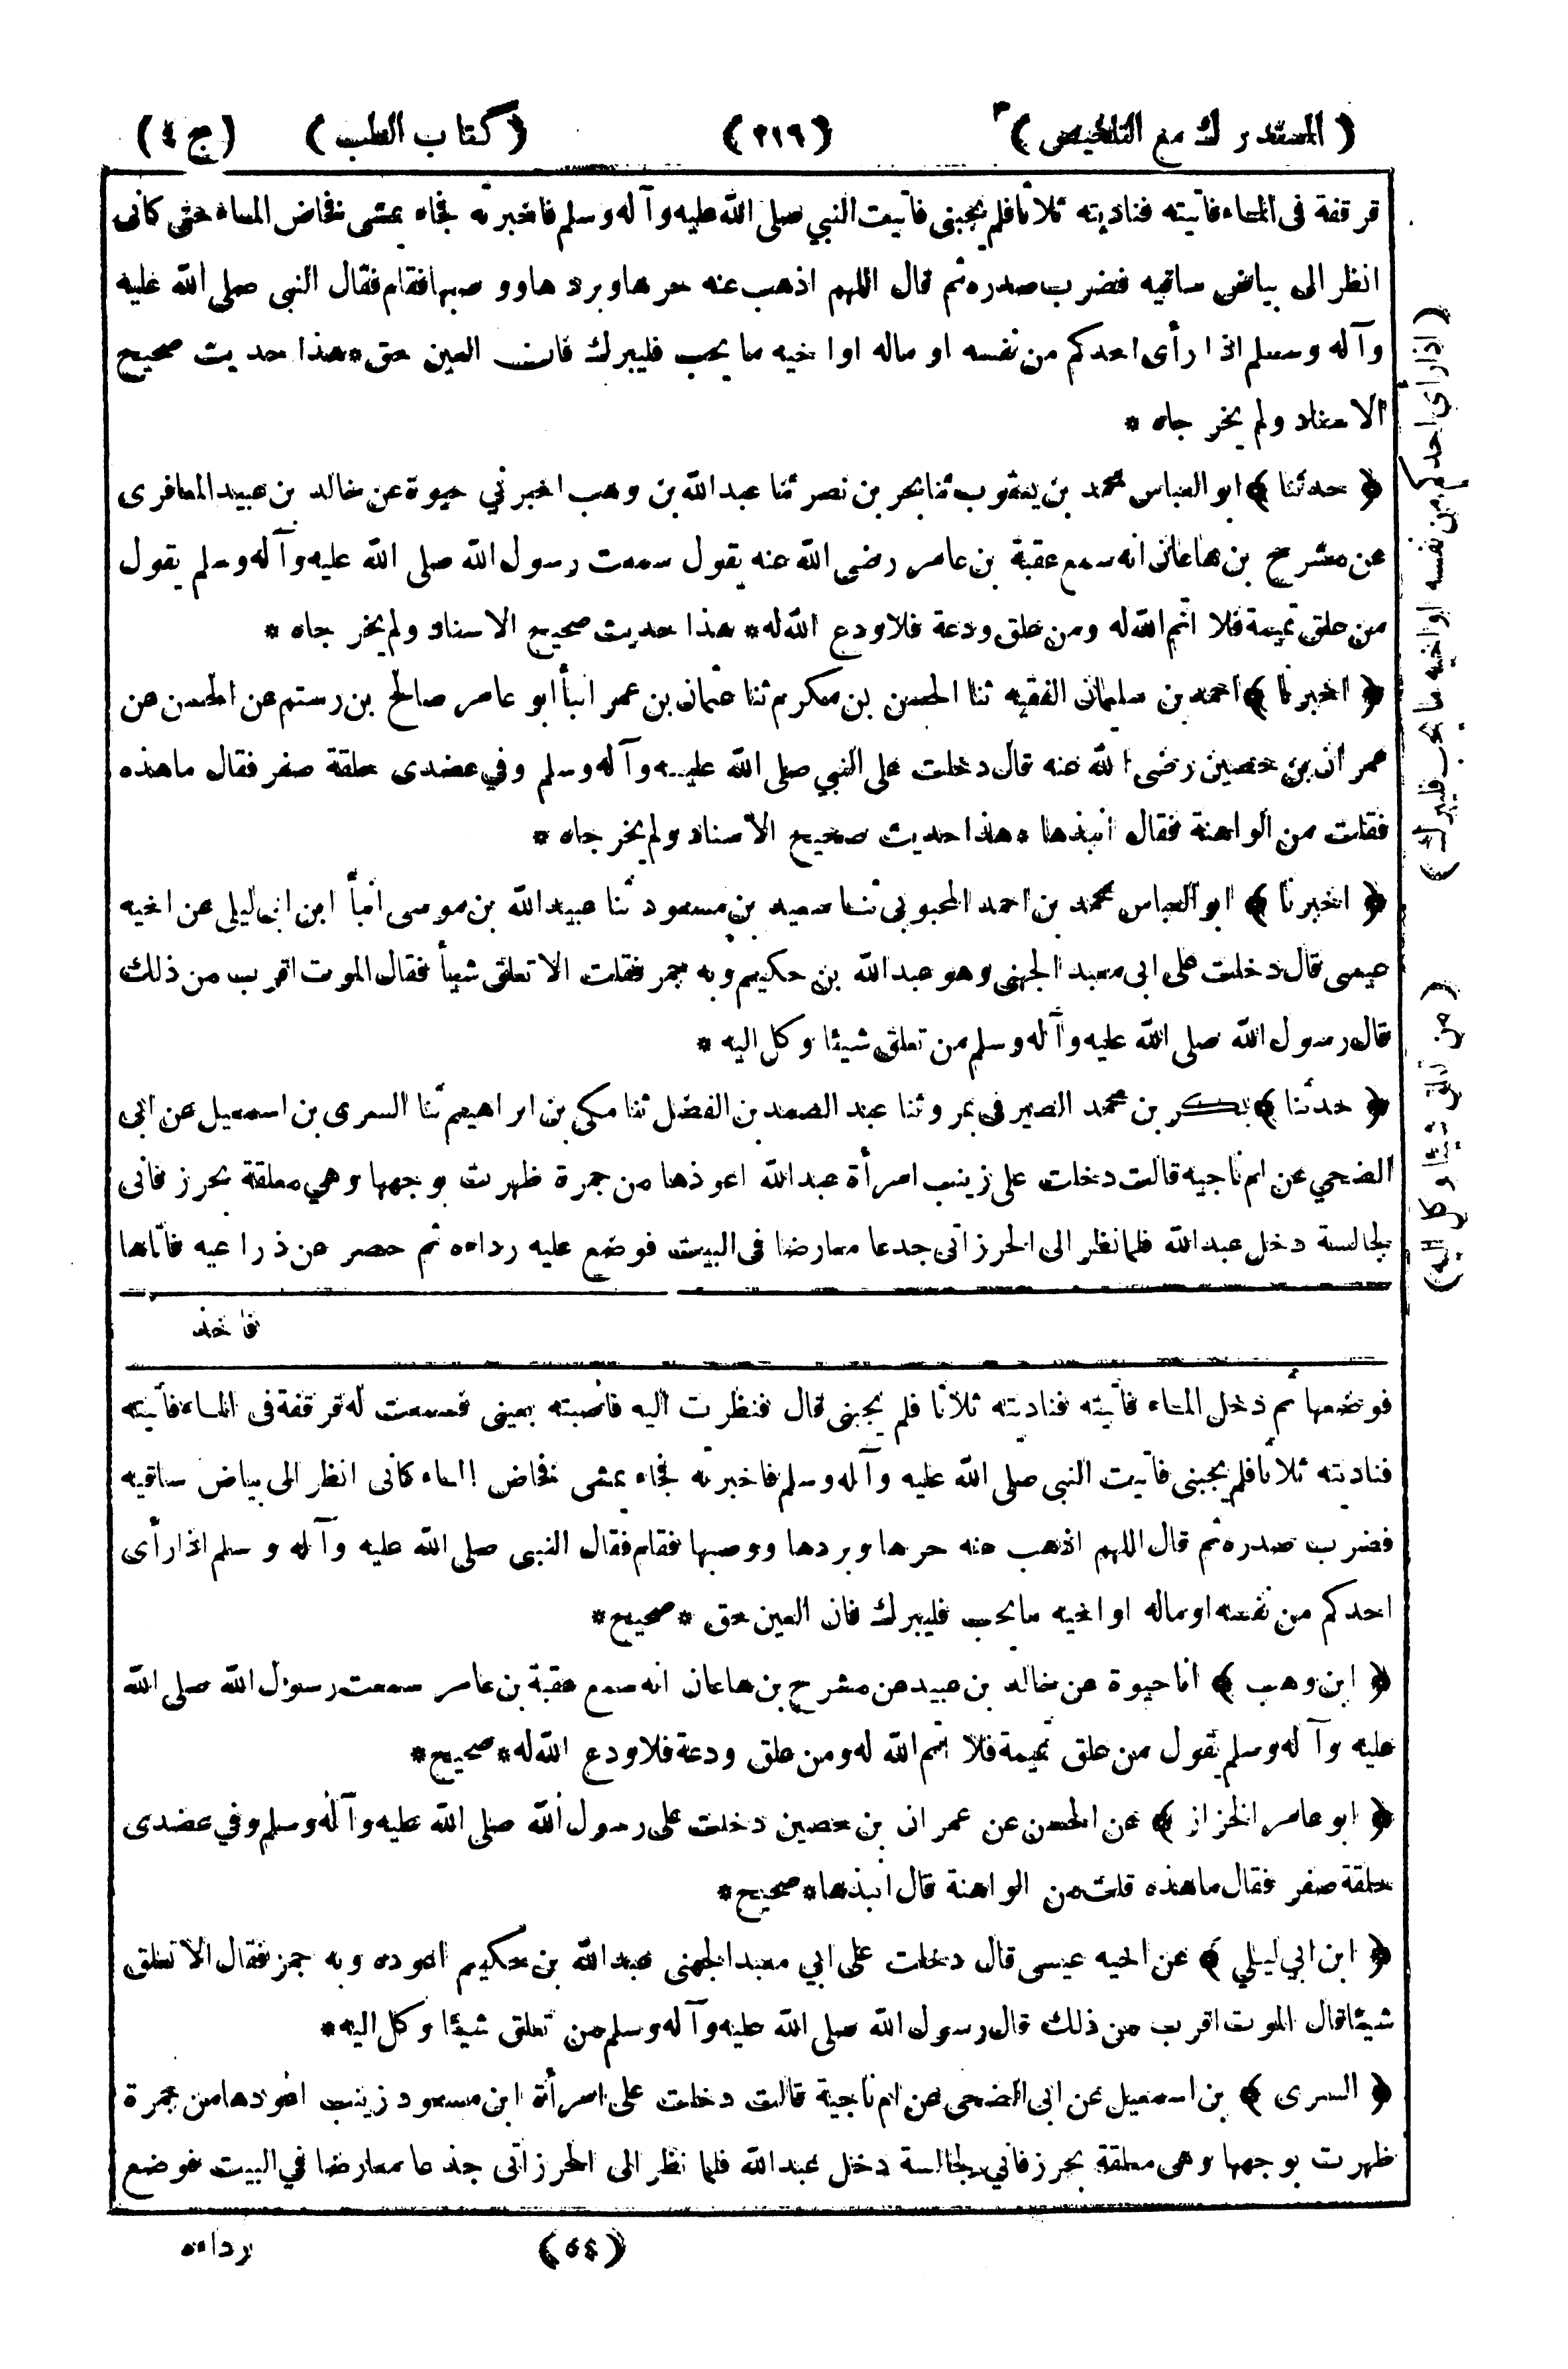 (المستدرك مع التلخيص) (٢١٦) (كتاب الطب) (ج ٤)
قرقفة فى الماء فأتيته فناديته ثلاثا فلم يجبنى فأتيت النبي صلى الله عليه وآله وسلم فاخبرته فجاء يمشى فخاض الماء حتى كانى
انظر الى بياض ساقيه فضرب صدره ثم قال اللهم اذهب عنه حرها وبردها ووصبها فقام فقال النبى صلى الله عليه
وآله وسلم اذا رأى احدكم من نفسه او ماله او اخيه ما يحب فليبرك فان العين حق * هذا حديث صحيح
الاسناد ولم يخرجاه *
﴿ حدثنا ﴾ ابو العباس محمد بن يعقوب ثنا بحر بن نصر ثنا عبد الله بن وهب اخبرني حيوة عن خالد بن عبيد المعافرى
عن مشرح بن هاعان انه سمع عقبة بن عامر رضى الله عنه يقول سمعت رسول الله صلى الله عليه وآله وسلم يقول
من علق تميمة فلا اتم الله له ومن علق ودعة فلا ودع الله له * هذا حديث صحيح الاسناد ولم يخرجاه *
﴿ اخبرنا ﴾ احمد بن سليمان الفقيه ثنا الحسن بن مكرم ثنا عثمان بن عمر انبأ ابو عامر صالح بن رستم عن الحسن عن
عمران بن حصين رضى الله عنه قال دخلت على النبي صلى الله عليه وآله وسلم وفي عضدى حلقة صفر فقال ما هذه
فقلت من الواهنة فقال انبذها * هذا حديث صحيح الاسناد ولم يخرجاه *
﴿ اخبرنا ﴾ ابو العباس محمد بن احمد المحبوبى ثنا سعيد بن مسعود ثنا عبيد الله بن موسى انبأ ابن ابى ليلى عن اخيه
عيسى قال دخلت على ابى معبد الجهنى وهو عبد الله بن حكيم وبه جمر فقلت الا تعلق شيأ فقال الموت اقرب من ذلك
قال رسول الله صلى الله عليه وآله وسلم من تعلق شيئا وكل اليه *
﴿ حدثنا ﴾ بكر بن محمد الصيرفى بمرو ثنا عبد الصمد بن الفضل ثنا مكى بن ابراهيم ثنا السرى بن اسمعيل عن ابى
الضحي عن ام ناجيه قالت دخلت على زينب امرأة عبد الله اعوذها من جمرة ظهرت بوجهها وهي معلقة بحرز فانى
لجالسة دخل عبد الله فلما نظر الى الحرز اتى جدعا معارضا فى البيت فوضع عليه رداءه ثم حصر عن ذراعيه فأتاها
فاخذ
فوضعها ثم دخل الماء فأتيته فناديته ثلاثا فلم يجبنى قال فنظرت اليه فاصبته بعينى فسمعت له قرقفة فى الماء فأتيته
فناديته ثلاثا فلم يجبنى فأتيت النبى صلى الله عليه وآله وسلم فاخبرته فجاء يمشى فخاض الماء كانى انظر الى بياض ساقيه
فضرب صدره ثم قال اللهم اذهب عنه حرها وبردها ووصبها فقام فقال النبى صلى الله عليه وآله وسلم اذا رأى
احدكم من نفسه او ماله او اخيه ما يحب فليبرك فان العين حق * صحيح *
﴿ ابن وهب ﴾ انا حيوة عن خالد بن عبيد عن مشرح بن هاعان انه سمع عقبة بن عامر سمعت رسول الله صلى الله
عليه وآله وسلم يقول من علق تميمة فلا اتم الله له ومن علق ودعة فلا ودع الله له * صحيح *
﴿ ابو عامر الخزاز ﴾ عن الحسن عن عمران بن حصين دخلت على رسول الله صلى الله عليه وآله وسلم وفي عضدى
حلقة صفر فقال ما هذه قلت من الواهنة قال انبذها * صحيح *
﴿ ابن ابي ليلي ﴾ عن اخيه عيسى قال دخلت على ابي معبد الجهنى عبد الله بن حكيم اعوده وبه جمر فقال الا تعلق
شيئا قال الموت اقرب من ذلك قال رسول الله صلى الله عليه وآله وسلم من تعلق شيئا وكل اليه *
﴿ السرى ﴾ بن اسمعيل عن ابى الضحى عن ام ناجية قالت دخلت على امرأة ابن مسعود زينب اعودها من جمرة
ظهرت بوجهها وهى معلقة بحرز فاني لجالسة دخل عبد الله فلما نظر الى الحرز اتى جذعا معارضا في البيت فوضع
(٥٤) رداءه
(اذا رأى احدكم من نفسه او اخيه ما يحب فليبرك)
(من تعلق شيئا وكل اليه)